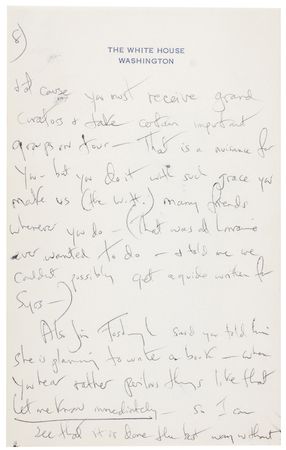 8)
THE WHITE HOUSE
WASHINGTON
cause you must receive grand
curators & take certain important
groups on tour — That is a nuisance for
you - but you do it with such grace you
make us (the W.H.) many friends
whenever you do — (That was all Lorraine
ever wanted to do — & told me we
couldn't possibly get a guide written for
5 yrs —)
Also Jim said you told him
she is planning to write a book — when
you hear rather perilous things like that
let me know immediately — so I can
see that it is done the best way without